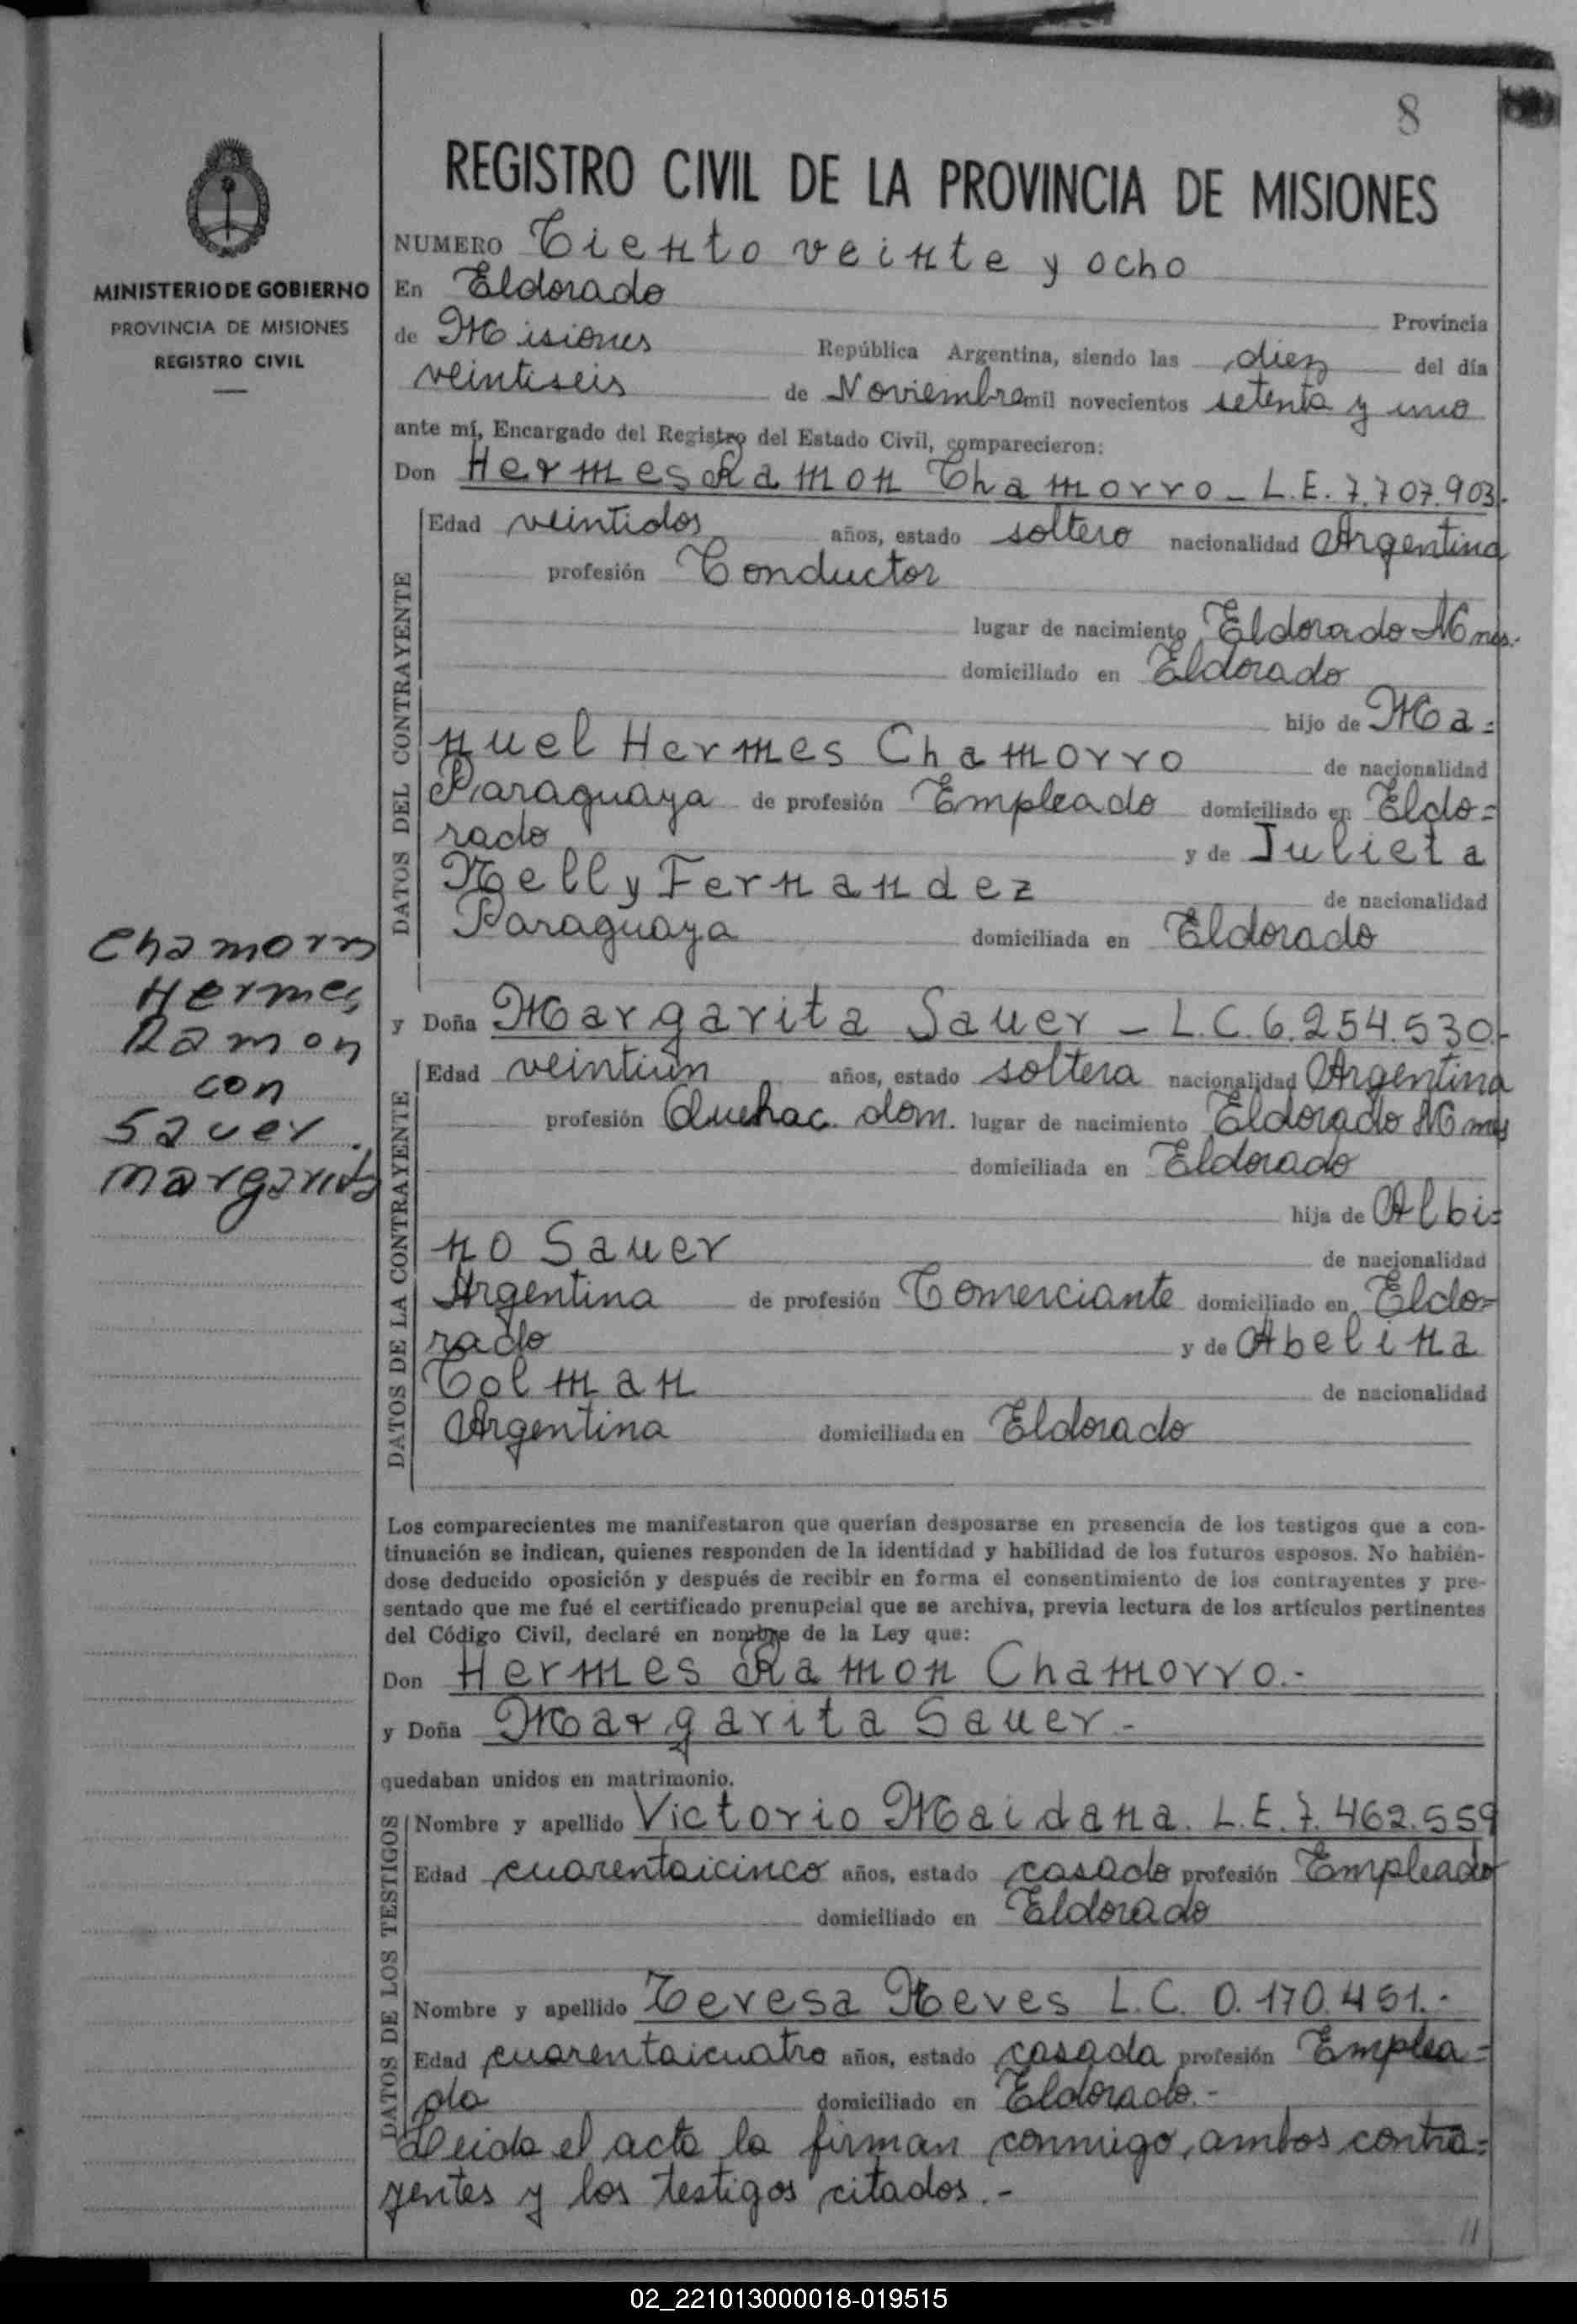 8
REGISTRO CIVIL DE LA PROVINCIA DE MISIONES
MINISTERIO DE GOBIERNO
PROVINCIA DE MISIONES
REGISTRO CIVIL
NUMERO Ciento veinte y ocho
En Eldorado Provincia
de Misiones República Argentina, siendo las diez del día
veintiseis de Noviembre mil novecientos setenta y uno
ante mí, Encargado del Registro del Estado Civil, comparecieron:
Don Hermes Ramon Chamorro - L.E. 7.707.903.-
DATOS DEL CONTRAYENTE
Edad veintidos años, estado soltero nacionalidad Argentina
profesión Conductor
lugar de nacimiento Eldorado Mnes.-
domiciliado en Eldorado
hijo de Ma=
nuel Hermes Chamorro de nacionalidad
Paraguaya de profesión Empleado domiciliado en Eldo=
rado y de Julieta
Nelly Fernandez de nacionalidad
Paraguaya domiciliada en Eldorado
Chamorro
Hermes
Ramon
con
Sauer.
Margarita
y Doña Margarita Sauer - L.C. 6.254.530.-
DATOS DE LA CONTRAYENTE
Edad veintiún años, estado soltera nacionalidad Argentina
profesión Quehac. dom. lugar de nacimiento Eldorado Mnes
domiciliada en Eldorado
hija de Albi=
no Sauer de nacionalidad
Argentina de profesión Comerciante domiciliado en Eldo=
rado y de Abelina
Colman de nacionalidad
Argentina domiciliada en Eldorado
Los comparecientes me manifestaron que querían desposarse en presencia de los testigos que a con-
tinuación se indican, quienes responden de la identidad y habilidad de los futuros esposos. No habién-
dose deducido oposición y después de recibir en forma el consentimiento de los contrayentes y pre-
sentado que me fué el certificado prenupcial que se archiva, previa lectura de los artículos pertinentes
del Código Civil, declaré en nombre de la Ley que:
Don Hermes Ramon Chamorro.-
y Doña Margarita Sauer.-
quedaban unidos en matrimonio.
DATOS DE LOS TESTIGOS
Nombre y apellido Victorio Maidana. L.E. 7.462.559
Edad cuarentaicinco años, estado casado profesión Empleado
domiciliado en Eldorado
Nombre y apellido Teresa Neves L.C. 0.170.451.-
Edad cuarentaicuatro años, estado casada profesión Emplea=
da domiciliado en Eldorado.-
Leida el acta la firman conmigo, ambos contra=
yentes y los testigos citados.-
//
02_221013000018-019515